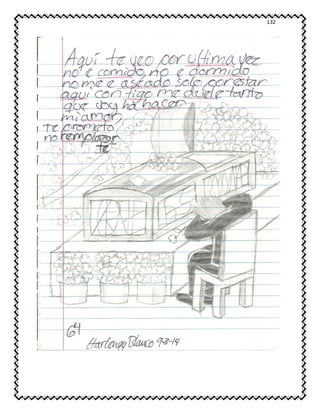 132
Aquí te veo por ultima vez
no e comido, no e dormido
no me e aseado solo por estar
aquí con tigo me duele tanto
que voy ha hacer
mi amor,
te prometo
no remplazar
te
64
Blanco 9-3-19